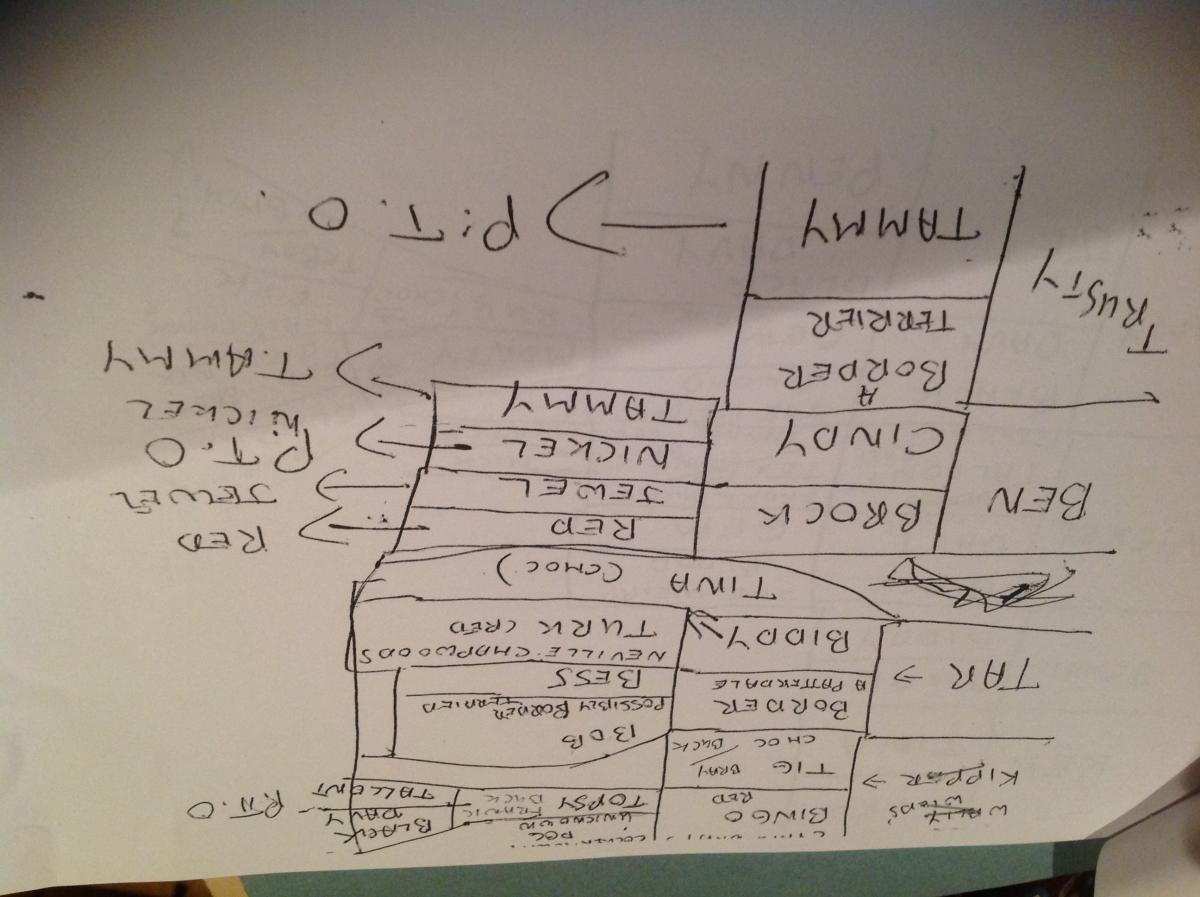 KIPPER →
BINGO
RED
TIG
CHOC / BUCK
UNKNOWN
TOPSY
BUCK
BLACK
DAVY
TALLENT
P.T.O
TAR →
BORDER
A PATTERDALE
BIDDY
BOB
POSSIBLY BORDER
BESS
TURK (RED
TINA (CHOC)
BEN
BROCK
CINDY
RED
JEWEL
NICKEL
TAMMY
RED
JEWEL
P.T.O
NICKEL
TAMMY
TRUSTY
A
BORDER
TERRIER
TAMMY
P.T.O.